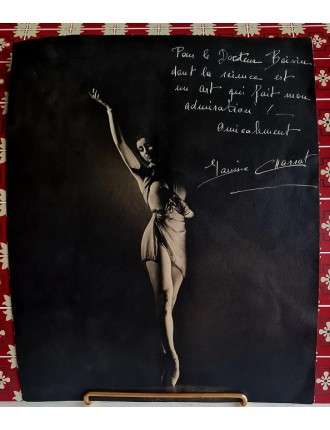 Pour le Docteur Boivin
dont la science est
un art qui fait mon
admiration !
amicalement